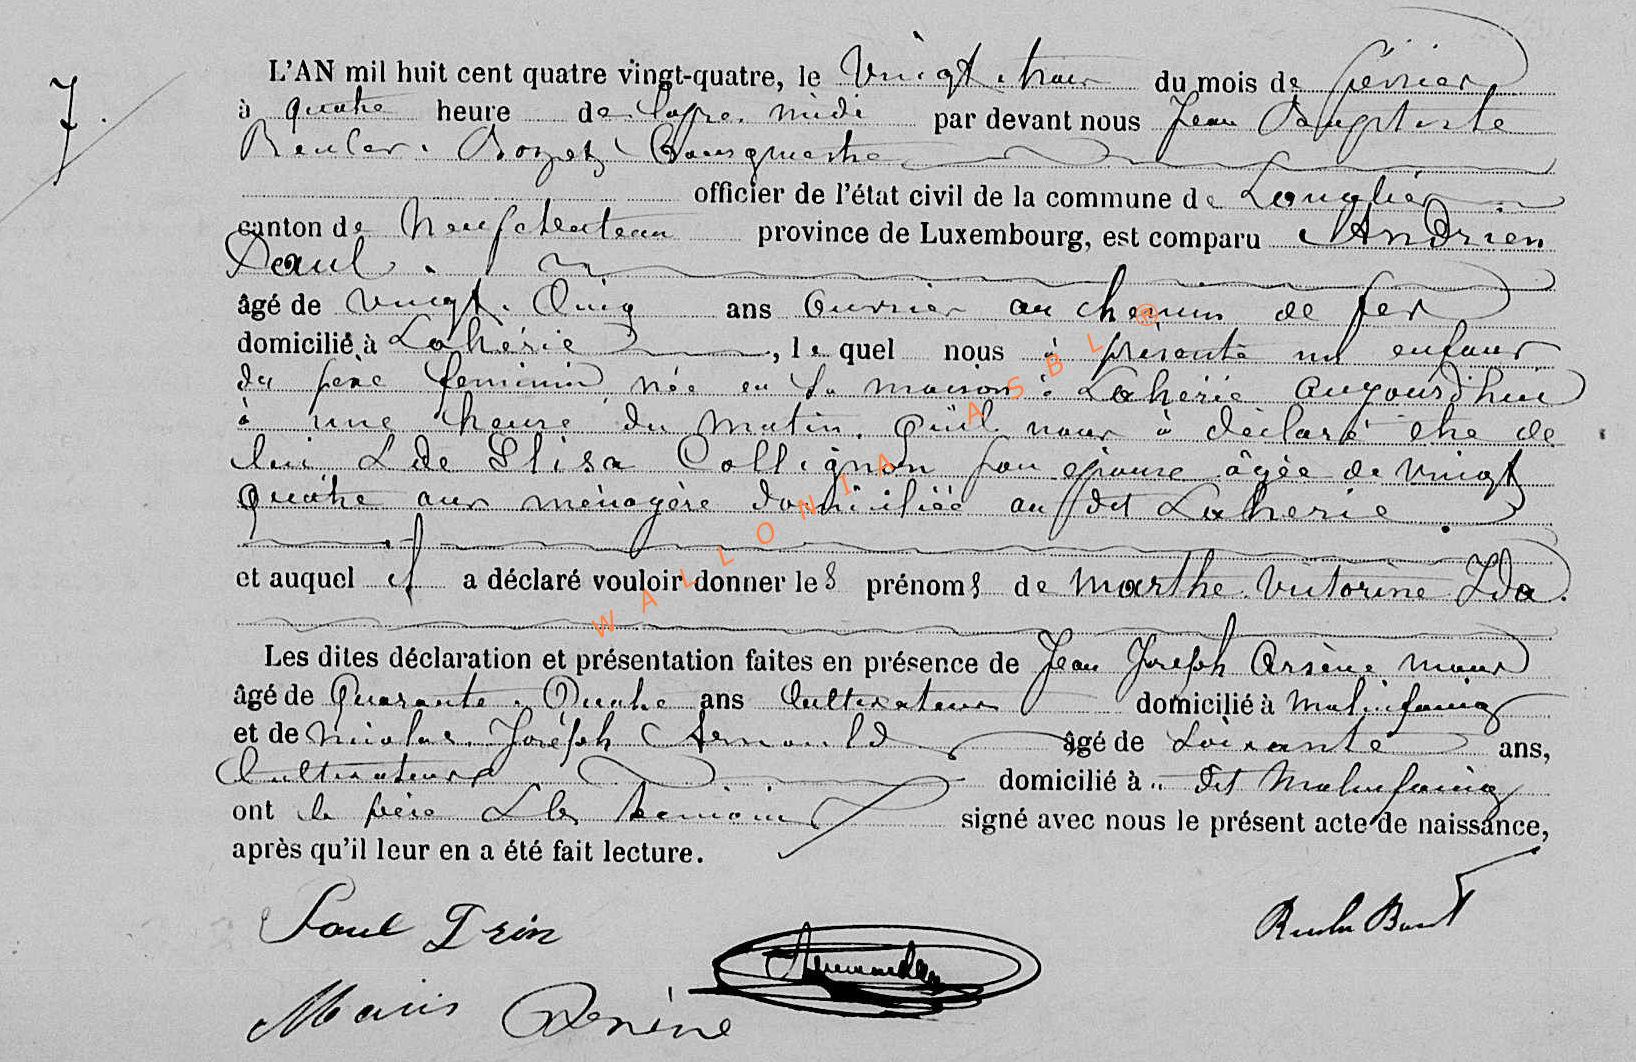 7.
L'AN mil huit cent quatre vingt-quatre, le Vingt trois du mois de février
à quatre heure de l'apre. midi par devant nous Jean Baptiste
Reuler. Rozet Bourgmestre
officier de l'état civil de la commune de Longlier
canton de Neufchateau province de Luxembourg, est comparu Andrien
Paul.
âgé de vingt. Cinq ans ouvrier au chemin de fer
domicilié à Lahérie, le quel nous à présenté un enfant
du sexe feminin née en sa maison à Lahérie aujourd'hui
à une heure du matin. qu'il nous à déclaré être de
lui & de Elisa Collignon son épouse âgée de vingt
quatre ans ménagère domiciliée au dit Laherie.
et auquel il a déclaré vouloir donner les prénoms de Marthe. Victorine Ida.
Les dites déclaration et présentation faites en présence de Jean Joseph Arsène
âgé de Quarante. Quatre ans Cultivateur domicilié à Malinfaing
et de Nicolas. Joseph Arnould âgé de Soixante ans,
Cultivateurs domicilié à dit Malinfaing
ont le père & les temoins signé avec nous le présent acte de naissance,
après qu'il leur en a été fait lecture.
Paul Drin
Arsène
WALLONIA ASBL ®